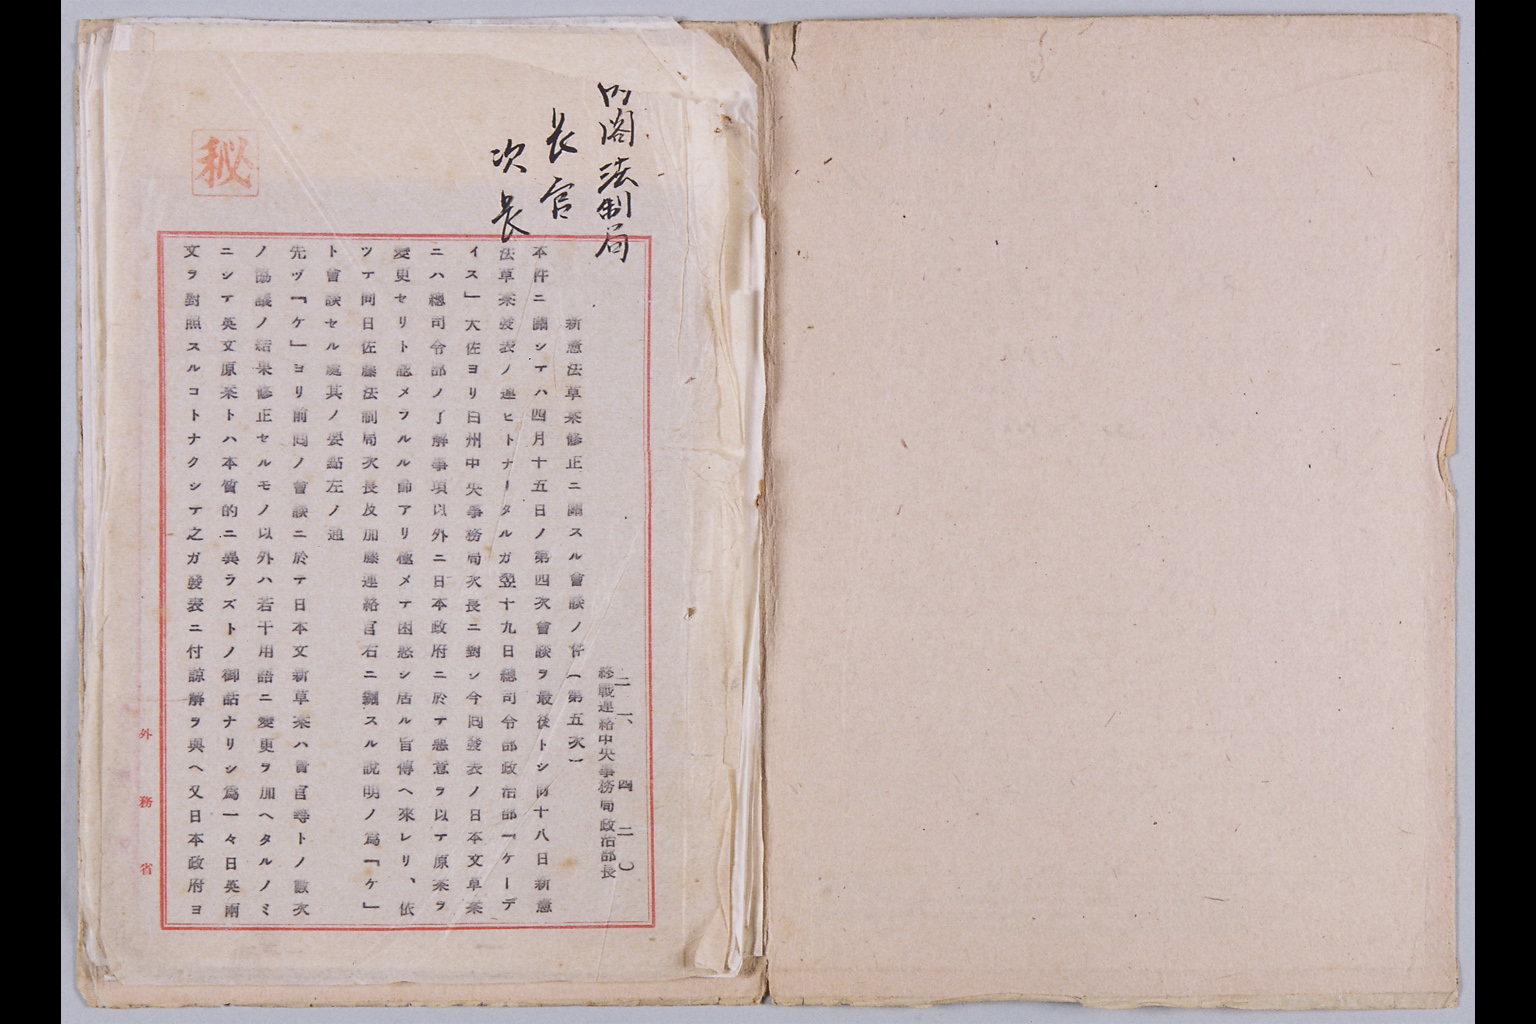 内閣法制局
長官
次長
秘
新憲法草案修正ニ關スル會談ノ件(第五次)
二一、四、二〇
終戰連絡中央事務局政治部長
本件ニ關シテハ四月十五日ノ第四次會談ヲ最後トシ同十八日新憲
法草案發表ノ運ヒトナータルガ翌十九日總司令部政治部「ケーデ
イス」大佐ヨリ白州中央事務局次長ニ對シ今囘發表ノ日本文草案
ニハ總司令部ノ了解事項以外ニ日本政府ニ於テ惡意ヲ以テ原案ヲ
變更セリト認メラルル節アリ極メテ困惑シ居ル旨傳ヘ來レリ、依
ツテ同日佐藤法制局次長及加藤連絡官右ニ關スル說明ノ爲「ケ」
ト會談セル處其ノ要點左ノ通
先ヅ「ケ」ヨリ前囘ノ會談ニ於テ日本文新草案ハ貴官等トノ數次
ノ協議ノ結果修正セルモノ以外ハ若干用語ニ變更ヲ加ヘタルノミ
ニシテ英文原案トハ本質的ニ異ラズトノ御話ナリシ爲一々日英兩
文ヲ對照スルコトナクシテ之ガ發表ニ付諒解ヲ與ヘ又日本政府ヨ
外務省